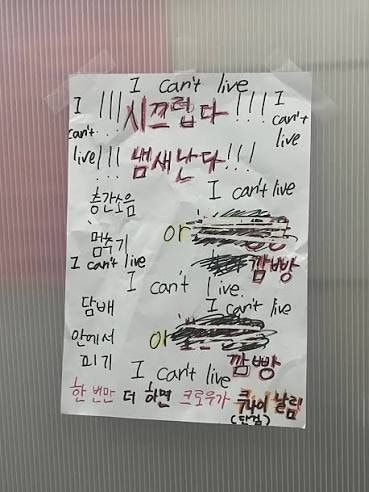 I can't live
I !!! 시끄럽다 !!!! I
can't can't
live !!! 냄새난다 !!! live
I can't live
층간소음
멈추기 or
깜빵
I can't live
I can't live.
담배 I can't live
안에서 or
피기 깜빵
I can't live
한 번만 더 하면 크로우가 쿠나이 날림
(단검)